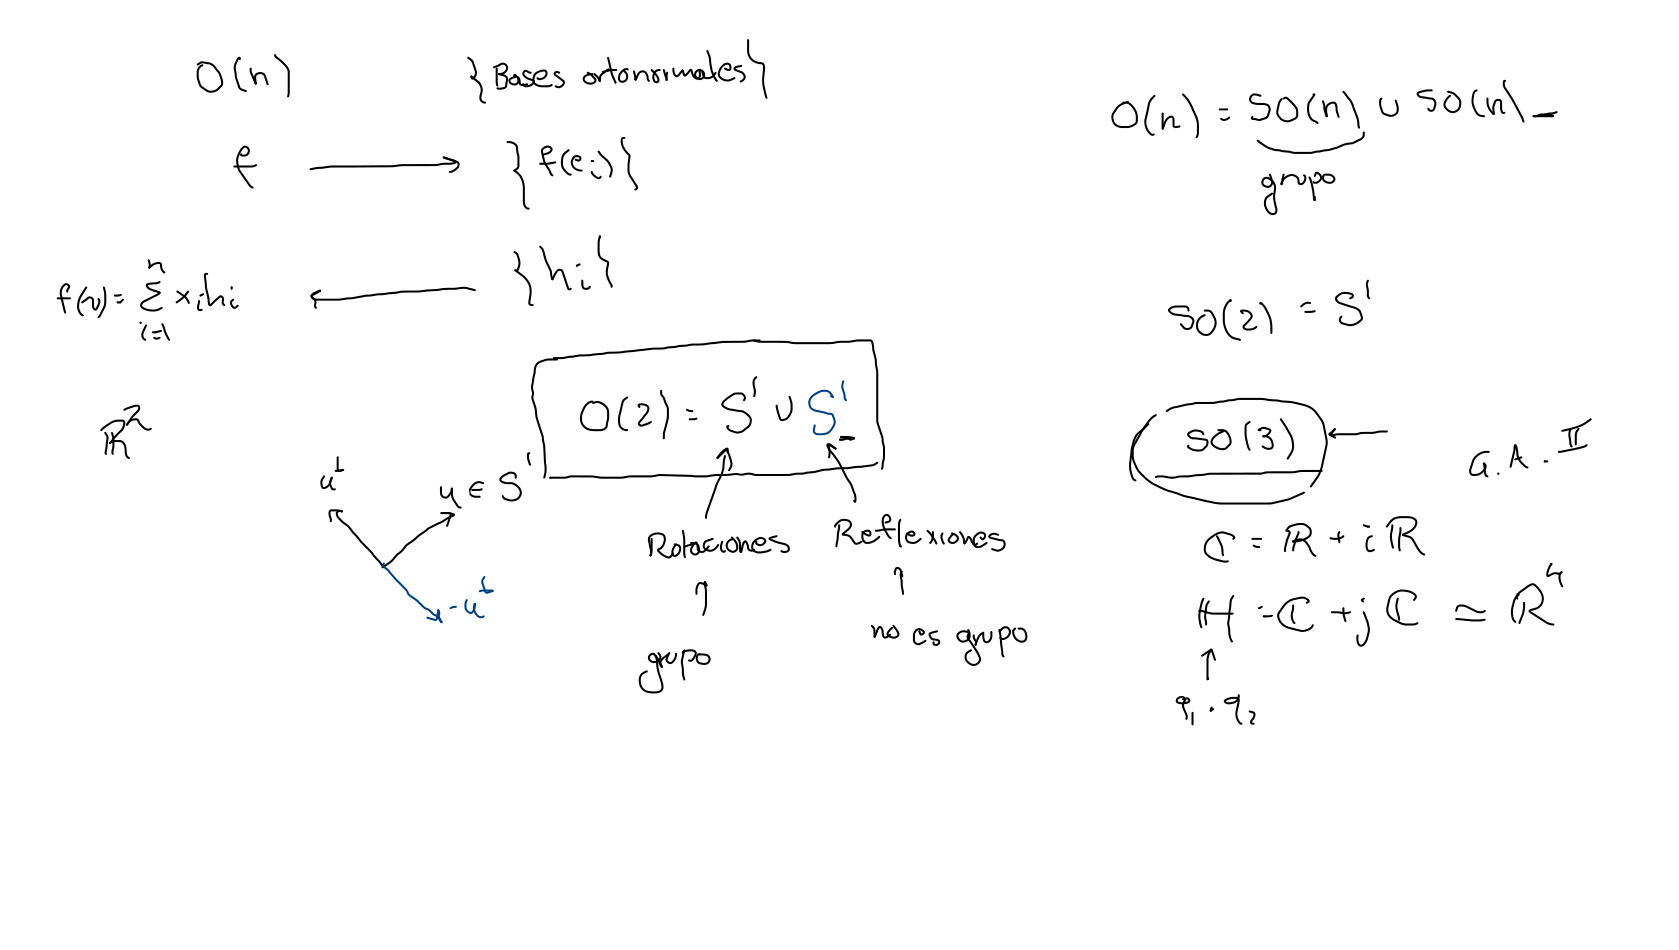 O(n) {Bases ortonormales}
f ⟶ {f(e_i)}
f(v) = \sum_{i=1}^{n} x_i h_i ⟵ {h_i}
ℝ²
O(2) = S¹ ∪ S¹_-
u^⊥
u ∈ S¹
-u^⊥
Rotaciones
↑
grupo
Reflexiones
↑
no es grupo
O(n) = SO(n) ∪ SO(n)_-
grupo
SO(2) = S¹
SO(3) ←
G.A. II
ℂ = ℝ + iℝ
ℍ = ℂ + jℂ ≃ ℝ⁴
↑
q₁ · q₂